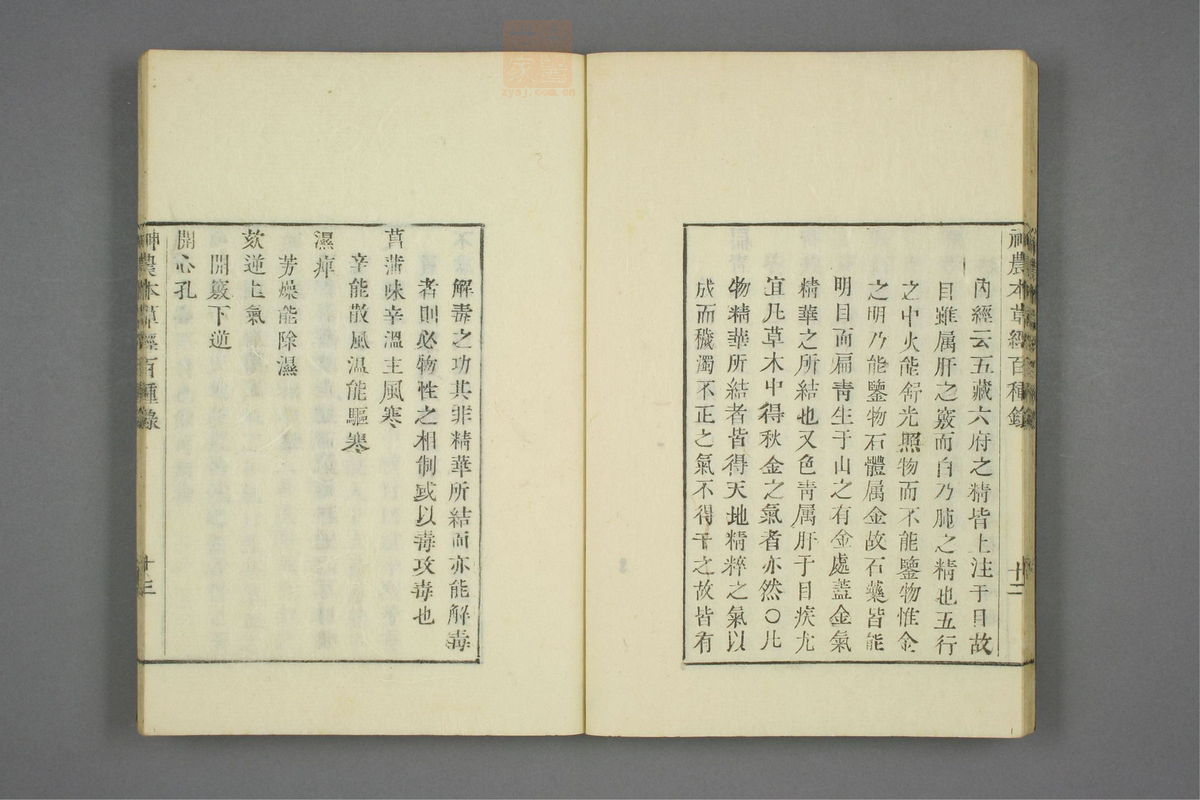 神農本草經百種錄
十二
內經云五藏六府之精皆上注于目故
目雖属肝之竅而白乃肺之精也五行
之中火能舒光照物而不能鑒物惟金
之明乃能鑒物石體属金故石藥皆能
明目而扁青生于山之有金處蓋金氣
精華之所結也又色青属肝于目疾尤
宜凡草木中得秋金之氣者亦然〇凡
物精華所結者皆得天地精粹之氣以
成而穢濁不正之氣不得干之故皆有
解毒之功其非精華所結而亦能解毒
者則必物性之相制或以毒攻毒也
菖蒲味辛溫主風寒
辛能散風温能驅寒
濕痺
芳燥能除濕
欬逆上氣
開竅下逆
開心孔
神農本草經百種錄
十三
zysj.com.cn